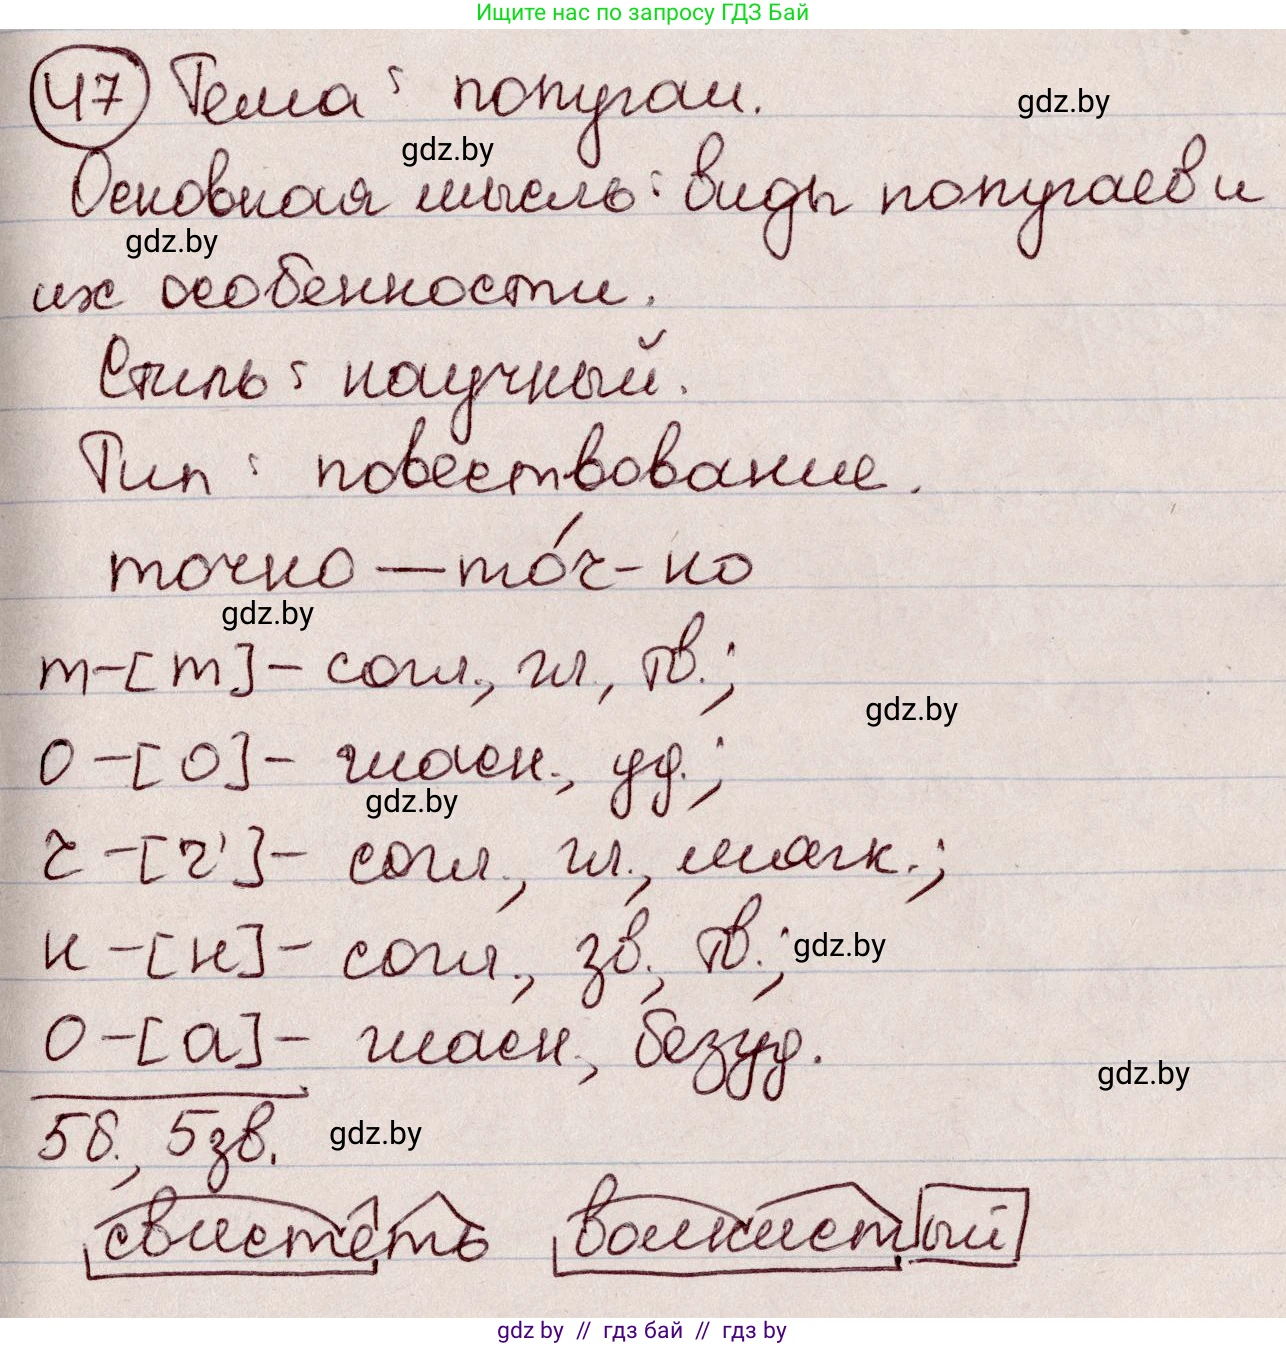 Ищите нас по запросу ГДЗ Бай
47 Тема: попугаи.
gdz.by
gdz.by
Основная мысль: виды попугаев и
gdz.by
их особенности.
Стиль: научный.
Тип: повествование.
точно — то́ч-но
gdz.by
т – [т] – согл., гл., тв.;
gdz.by
о – [о] – гласн., уд.;
gdz.by
ч – [ч'] – согл., гл., мягк.;
н – [н] – согл., зв., тв.;
gdz.by
о – [а] – гласн., безуд.
gdz.by
5 б., 5 зв.
gdz.by
свистеть волнистый
gdz by // гдз бай // гдз by